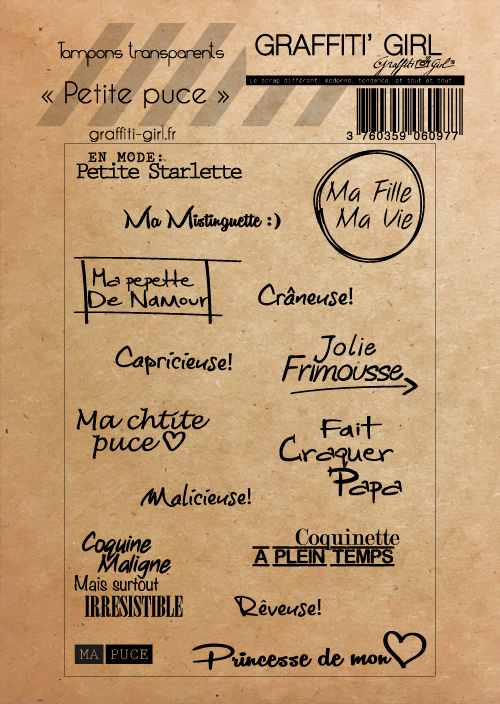 Tampons transparents
« Petite puce »
graffiti-girl.fr
GRAFFITI' GIRL
Graffiti Girl
Le scrap différent, moderne, tendance, et tout et tout.
3 760359 060977
EN MODE:
Petite Starlette
Ma Fille
Ma Vie
Ma Mistinguette :)
Ma pepette
De Namour
Crâneuse!
Capricieuse!
Jolie
Frimousse
Ma chtite
puce
Fait
Craquer
Papa
Malicieuse!
Coquine
Maligne
Mais surtout
IRRESISTIBLE
Coquinette
A PLEIN TEMPS
Rêveuse!
MA PUCE
Princesse de mon